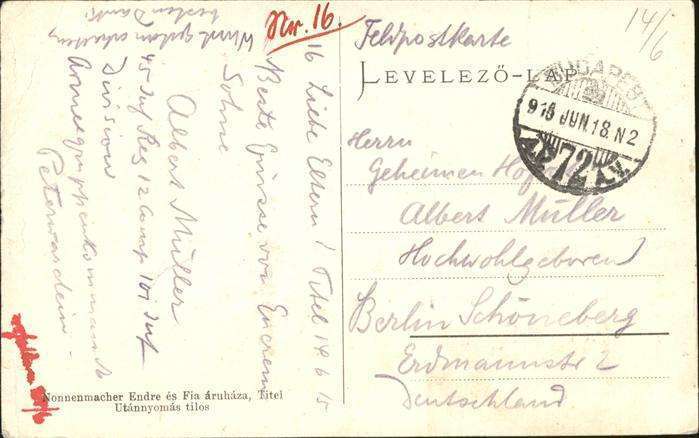 Nr. 16.
Wurst gestern erhalten
besten Dank!
16 Liebe Eltern! Titel 14 6 15
Beste Grüsse von Eurem
Sohne
Albert Müller
45 Inf Reg 12 Comp 101 Inf
Division
Armeegruppenkommando
Peterwardein
Nonnenmacher Endre és Fia áruháza, Titel
Utánnyomás tilos
14/6
Feldpostkarte
LEVELEZŐ-LAP
BUDAPEST
915 JUN.18.N2
72
Herrn
Geheimen
Albert Müller
Hochwohlgeboren
Berlin Schöneberg
Erdmannstr 2
Deutschland